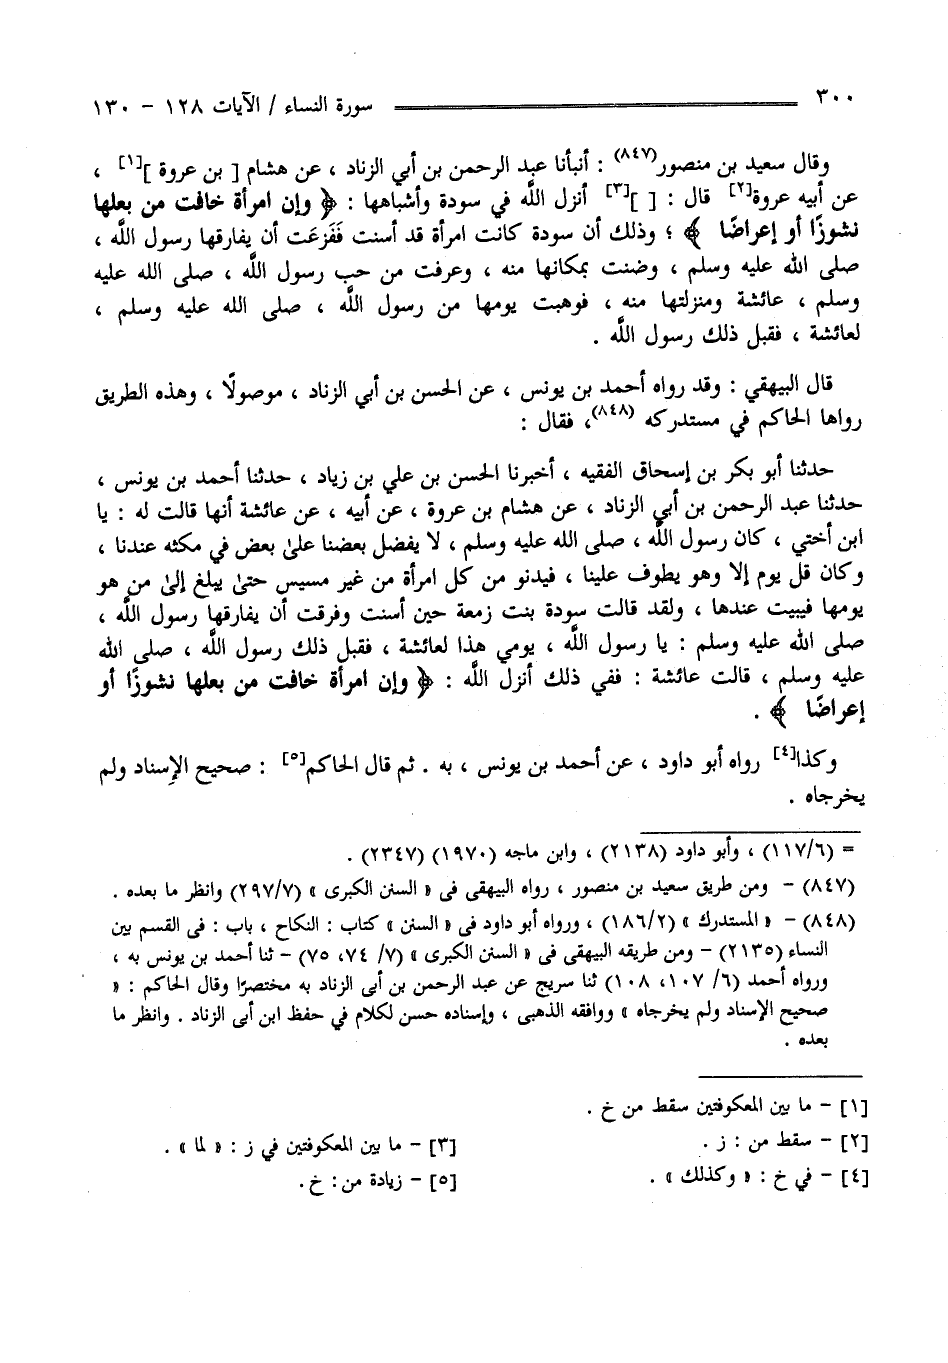 ٣٠٠ سورة النساء / الآيات ١٢٨ - ١٣٠
وقال سعيد بن منصور(٨٤٧) : أنبأنا عبد الرحمن بن أبي الزناد ، عن هشام [ بن عروة ][١] ،
عن أبيه عروة[٢] قال : [ ][٣] أنزل اللَّه في سودة وأشباهها : ﴿ وإن امرأة خافت من بعلها
نشوزًا أو إعراضًا ﴾ ؛ وذلك أن سودة كانت امرأة قد أسنت فَفَزعَت أن يفارقها رسول اللَّه ،
صلى الله عليه وسلم ، وضنت بمكانها منه ، وعرفت من حب رسول اللَّه ، صلى الله عليه
وسلم ، عائشة ومنزلتها منه ، فوهبت يومها من رسول اللَّه ، صلى الله عليه وسلم ،
لعائشة ، فقبل ذلك رسول اللَّه .
قال البيهقي : وقد رواه أحمد بن يونس ، عن الحسن بن أبي الزناد ، موصولًا ، وهذه الطريق
رواها الحاكم في مستدركه (٨٤٨)، فقال :
حدثنا أبو بكر بن إسحاق الفقيه ، أخبرنا الحسن بن علي بن زياد ، حدثنا أحمد بن يونس ،
حدثنا عبد الرحمن بن أبي الزناد ، عن هشام بن عروة ، عن أبيه ، عن عائشة أنها قالت له : يا
ابن أختي ، كان رسول اللَّه ، صلى الله عليه وسلم ، لا يفضل بعضنا علىٰ بعض في مكثه عندنا ،
وكان قل يوم إلا وهو يطوف علينا ، فيدنو من كل امرأة من غير مسيس حتىٰ يبلغ إلىٰ من هو
يومها فيبيت عندها ، ولقد قالت سودة بنت زمعة حين أسنت وفرقت أن يفارقها رسول اللَّه ،
صلى الله عليه وسلم : يا رسول اللَّه ، يومي هذا لعائشة ، فقبل ذلك رسول اللَّه ، صلى الله
عليه وسلم ، قالت عائشة : ففي ذلك أنزل اللَّه : ﴿ وإن امرأة خافت من بعلها نشوزًا أو
إعراضًا ﴾ .
وكذا[٤] رواه أبو داود ، عن أحمد بن يونس ، به . ثم قال الحاكم[٥] : صحيح الإسناد ولم
يخرجاه .
= (١١٧/٦) ، وأبو داود (٢١٣٨) ، وابن ماجه (١٩٧٠) (٢٣٤٧) .
(٨٤٧) - ومن طريق سعيد بن منصور ، رواه البيهقى فى « السنن الكبرى » (٢٩٧/٧) وانظر ما بعده .
(٨٤٨) - « المستدرك » (١٨٦/٢) ، ورواه أبو داود فى « السنن » كتاب : النكاح ، باب : فى القسم بين
النساء (٢١٣٥) - ومن طريقه البيهقى فى « السنن الكبرى » (٧/ ٧٤، ٧٥) - ثنا أحمد بن يونس به ،
ورواه أحمد (٦/ ١٠٧، ١٠٨) ثنا سريج عن عبد الرحمن بن أبى الزناد به مختصرًا وقال الحاكم : «
صحيح الإسناد ولم يخرجاه » ووافقه الذهبى ، وإسناده حسن لكلام في حفظ ابن أبى الزناد . وانظر ما
بعده .
[١] - ما بين المعكوفتين سقط من خ .
[٢] - سقط من : ز . [٣] - ما بين المعكوفتين في ز : « لما » .
[٤] - في خ : « وكذلك » . [٥] - زيادة من : خ .